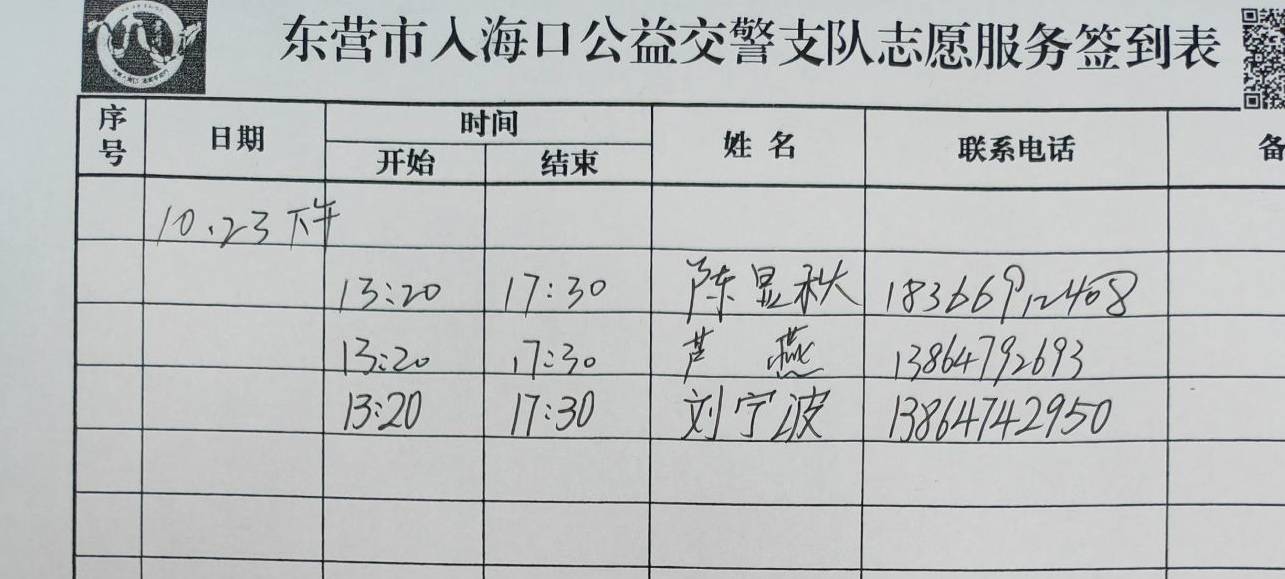 东营市入海口公益交警支队志愿服务签到表
序号 日期 时间 姓名 联系电话 备
开始 结束
10.23下午
13:20 17:30 陈昱秋 18366912408
13:20 17:30 芦燕 13864792693
13:20 17:30 刘宁波 13864742950